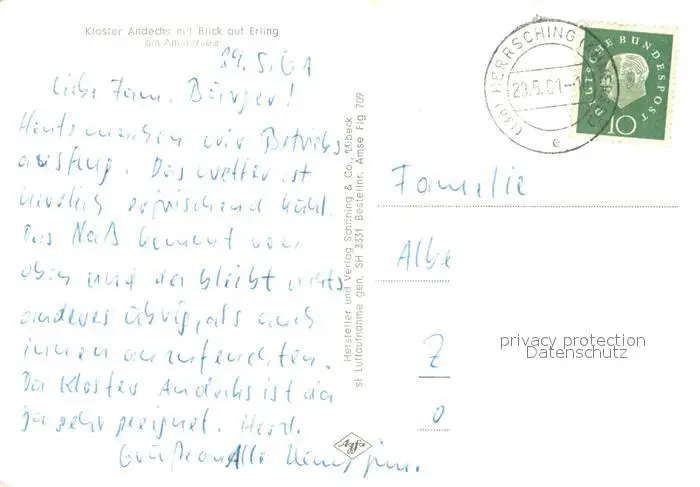 Kloster Andechs mit Blick auf Erling
am Ammersee
29.5.61
Liebe Fam. Bürger!
Heute machen wir Betriebs
ausflug. Das Wetter ist
herrlich erfrischend kühl.
Das Naß kommt von
oben und da bleibt nichts
anderes übrig, als auch
innen anzufeuchten.
Da Kloster Andechs ist da
ja sehr geeignet. Herzl.
Grüße an Alle
Hersteller und Verlag Schöning & Co., Lübeck
Luftaufnahme gen. SH 3331 Bestellnr. Amse Flg 709
Agfa
(13b) HERRSCHING
29.5.61
e
DEUTSCHE BUNDESPOST
10
Familie
Albe
Z
o
privacy protection
Datenschutz